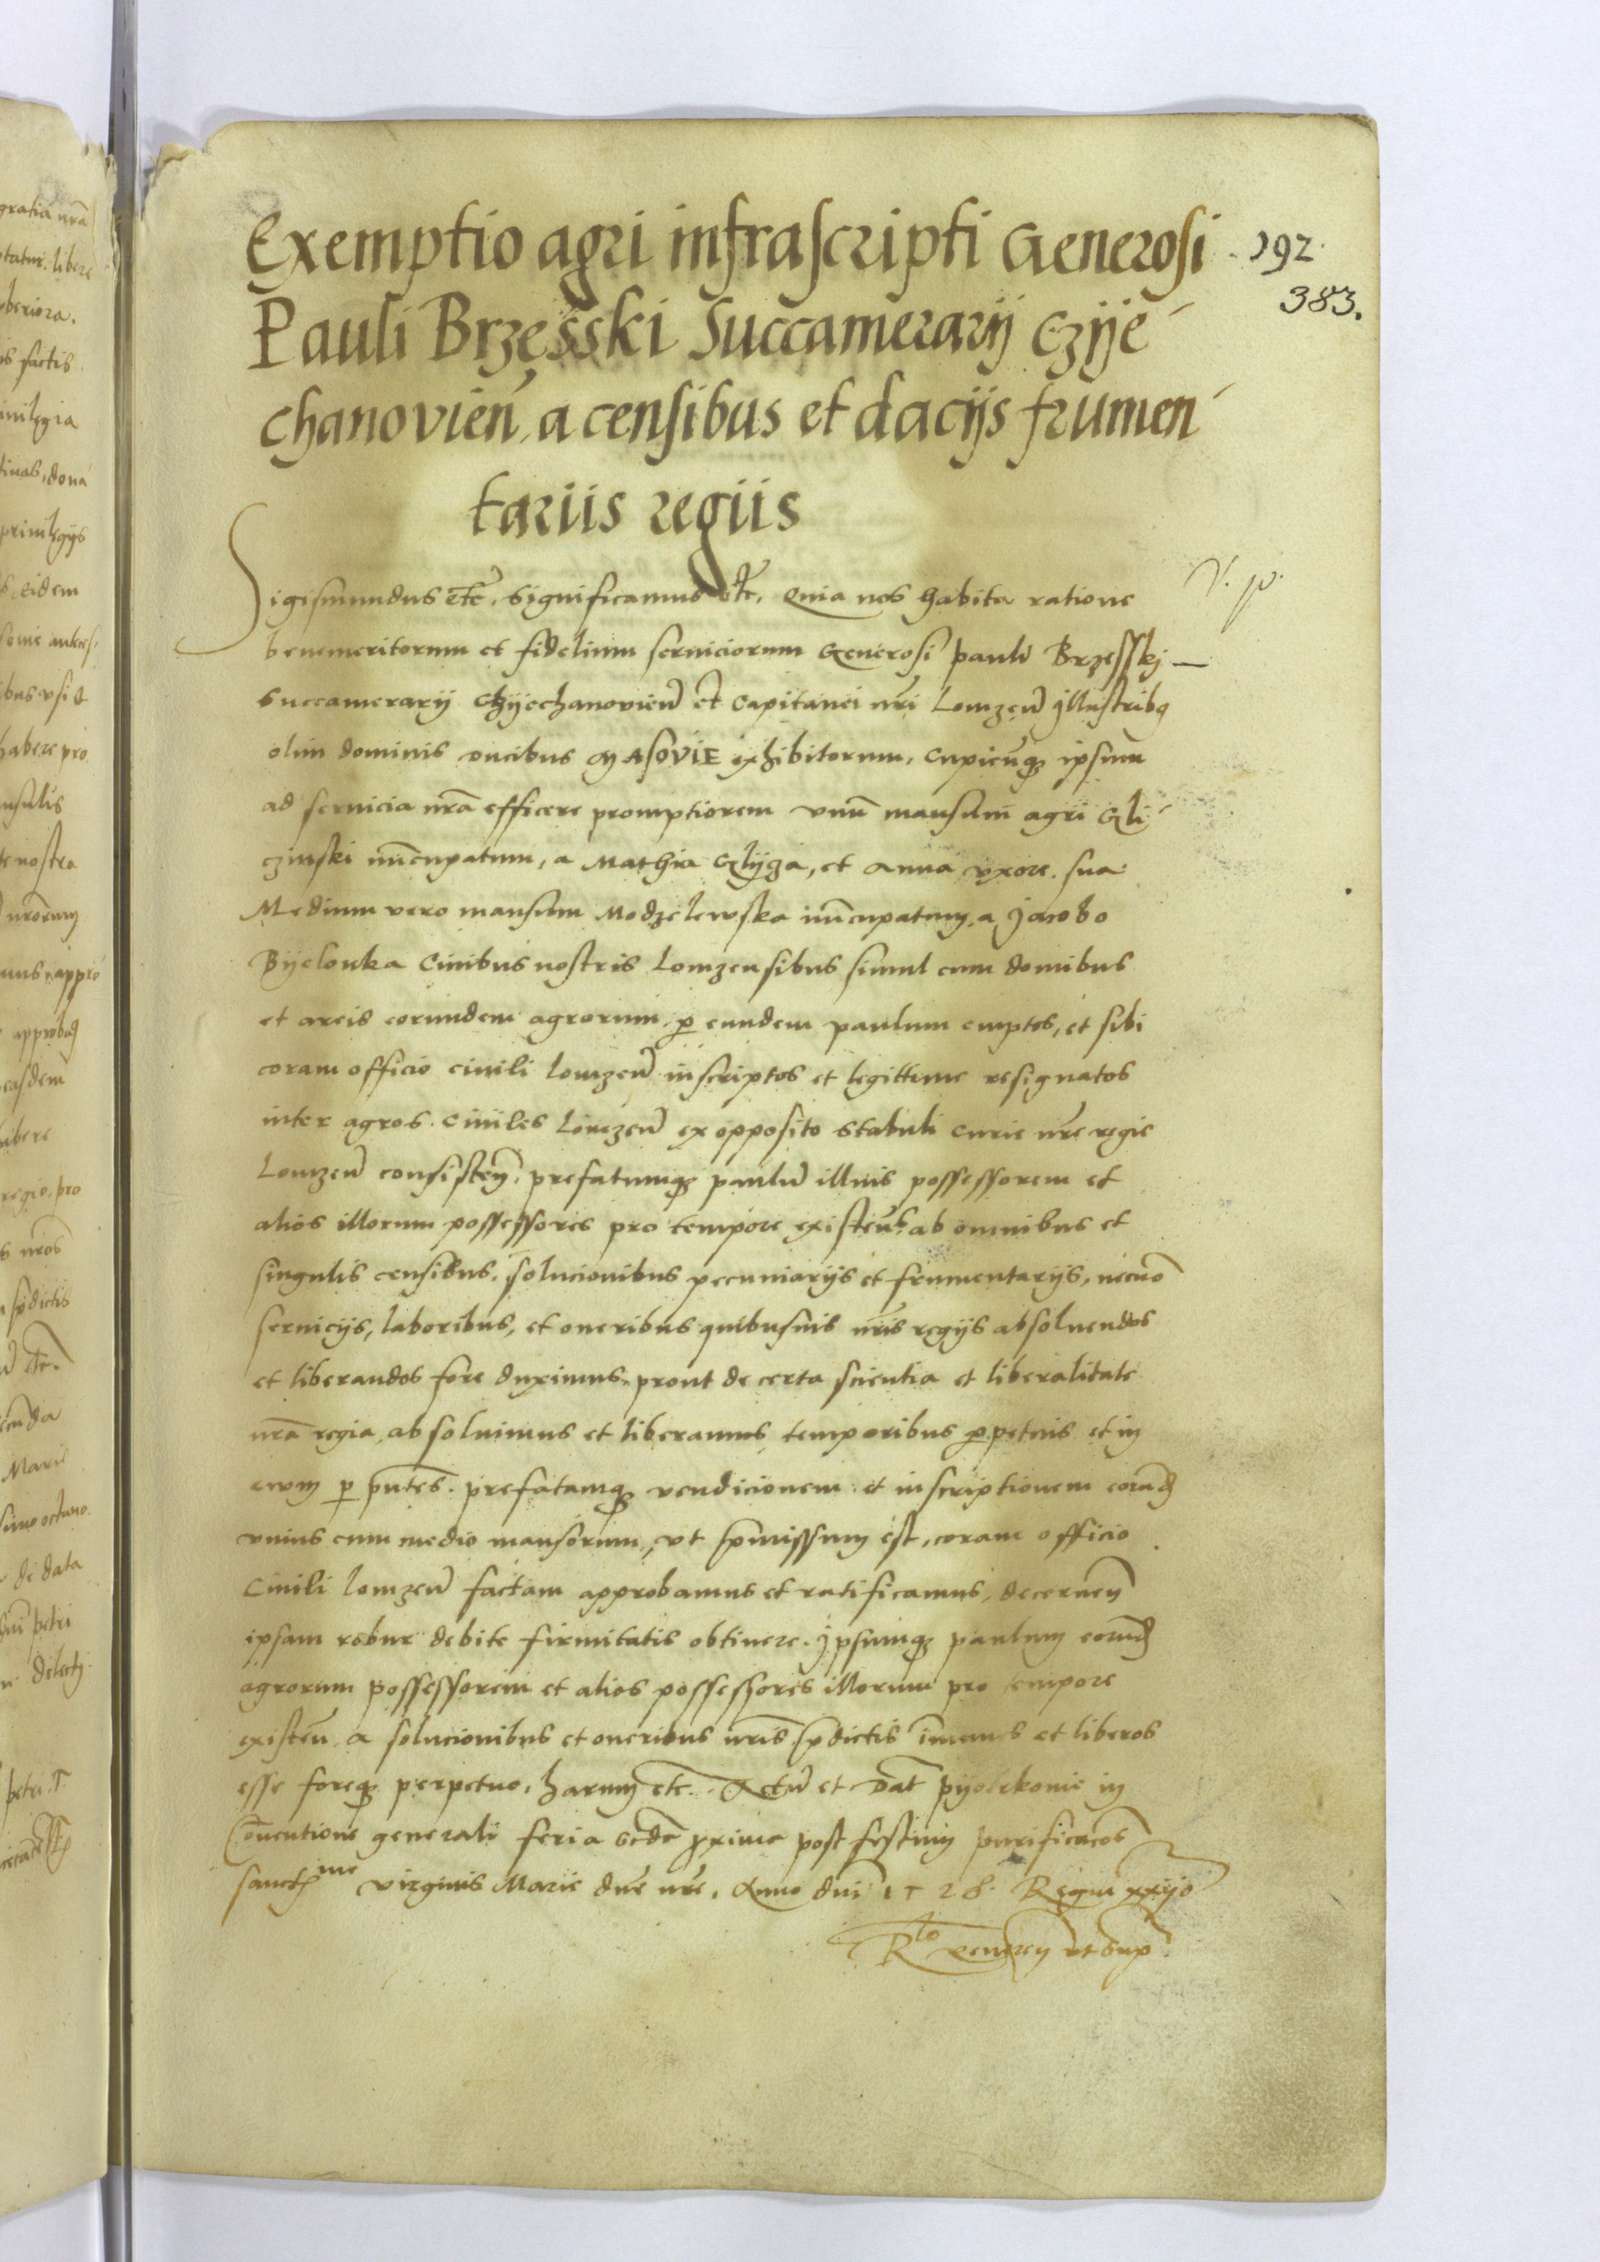 Exemptio agri infrascripti Generosi
192.
383.
Pauli Brzesski Succamerarij Czije
chanovien̄, a censibus et dacijs frumen
tariis regiis
V. p.
Sigismundus etc̄. Significamus etc̄. Quia nos habita ratione
benemeritorum et fidelium serviciorum Generosi pauli Brzesskj
Succamerarij Czyechanovien̄ et Capitanei nr̄i Lomzen̄ Jllustribq
olim dominis ducibus MASOVIE exhibitorum, Cupien̄q ipsum
ad servicia nr̄a efficere promptiorem vnū mansum agri Gli
czinski nūcupatum, a Mathia Glyza, et Anna vxore sua
Medium vero mansum Modzelewska nūcupatum, a Jacobo
Byelonka Civibus nostris Lomzensibus simul cum domibus
et areis eorundem agrorum p̄ eundem paulum emptos, et sibi
coram officio civili Lomzen̄ inscriptos et legittime resignatos
inter agros Civiles Lomzen̄ ex opposito stabuli curie nr̄e regie
Lomzen̄ consisten̄, prefatumq paulū illius possessorem et
alios illorum possessores pro tempore existen̄ ab omnibus et
singulis censibus, solucionibus pecuniarijs et frumentarijs, necno
servicijs, laboribus, et oneribus quibusvis nr̄is regijs absoluendos
et liberandos fore duximus, prout de certa scientia et liberalitate
nr̄a regia absoluimus et liberamus temporibus p̄petuis et in
evum p̄ pn̄tes. prefatamq vendicionem et inscriptionem eorūd
vnius cum medio mansorum, vt p̄missum est, coram officio
Civili Lomzen̄ factam approbamus et ratificamus, decernen̄
ipsam robur debite firmitatis obtinere. Jpsumq paulum eorūd
agrorum possessorem et alios possessores illorum pro tempore
existen̄ a solucionibus et oneribus nr̄is p̄dictis īmunes et liberos
esse foreq perpetuo, harum etc̄. Actū et Dat̄ pyotrkovie in
Cōventione generali feria scd̄a p̄xima post festum purificacōis
sanctme virginis Marie dn̄e nr̄e, Anno dn̄i 1528. Regni xxijo
Rlo ut sup̄